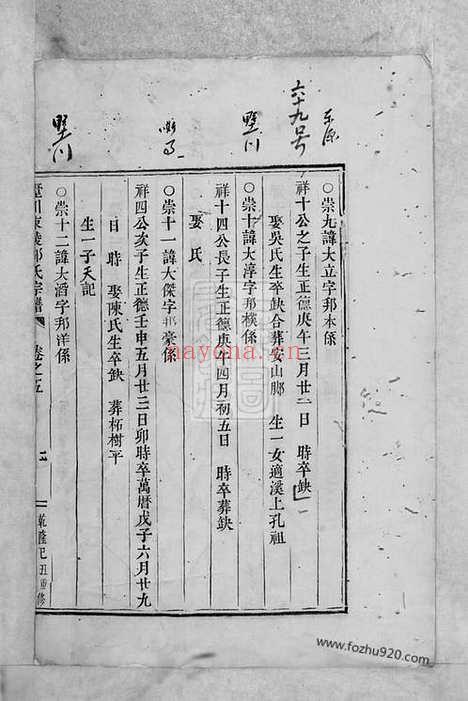 六十九号
墅川
墅川
〇崇九諱大立字邦本係
祥十公之子生正德庚午三月廿二日 時卒缺
娶吳氏生卒缺合葬安山腳 生一女適溪上孔祖
〇崇十諱大淳字邦樸係
祥十四公長子生正德庚午四月初五日 時卒葬缺
娶 氏
〇崇十一諱大傑字邦豪係
祥四公次子生正德壬申五月廿三日卯時卒萬曆戊子六月廿九
日 時 娶陳氏生卒缺 葬柘樹平
生一子天記
〇崇十二諱大滔字邦洋係
氏宗譜 卷之五 乾隆己丑重修
nayona.cn
www.fozhu920.com